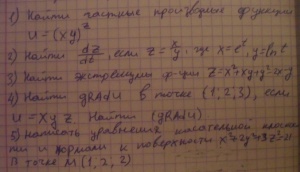 1) Найти частные производные функции
U = (xy)^z
2) Найти dz/dt, если z = x/y, где x = e^t, y = ln t
3) Найти экстремумы ф-ции z = x²+xy+y²-
4) Найти gradu в точке (1,2,3), если
U = xyz. Найти (gradu)
5) Написать уравнения касательной плоскос
ти и нормали к поверхности x²+2y²+3z²=21
В точке M(1,2,2)